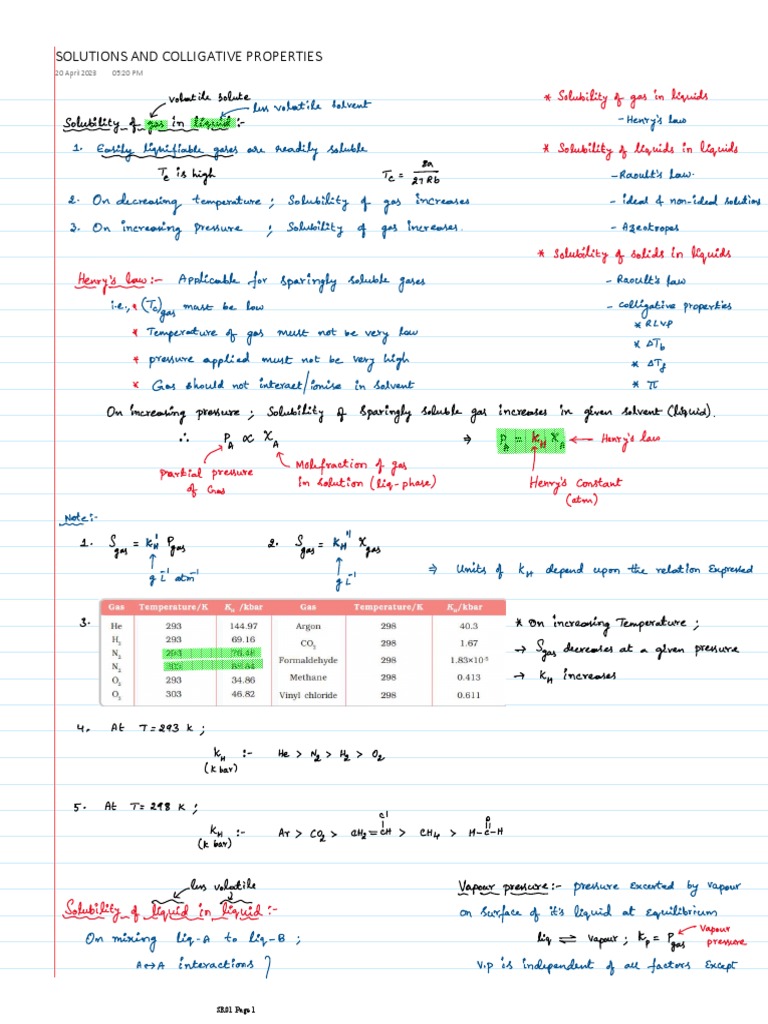 SOLUTIONS AND COLLIGATIVE PROPERTIES
20 April 2023 05:20 PM
volatile solute
less volatile solvent
Solubility of gas in liquid :-
1. Easily liquifiable gases are readily soluble
Tc is high
Tc = 8a / 27Rb
2. On decreasing temperature ; Solubility of gas increases
3. On increasing pressure ; Solubility of gas increases.
* Solubility of gas in liquids
- Henry's law
* Solubility of liquids in liquids
- Raoult's law.
- ideal & non-ideal solutions
- Azeotropes
* Solubility of solids in liquids
- Raoult's law
- Colligative properties
* RLVP
* ΔTb
* ΔTf
* π
Henry's law :- Applicable for sparingly soluble gases
i.e., * (Tc)gas must be low
* Temperature of gas must not be very low
* pressure applied must not be very high
* Gas should not interact/ionise in solvent
On increasing pressure ; Solubility of sparingly soluble gas increases in given solvent (liquid).
∴ PA ∝ XA ⇒ PA = KH XA ← Henry's law
partial pressure of Gas
Molefraction of gas in solution (liq-phase)
Henry's Constant (atm)
Note :-
1. Sgas = KH' Pgas 2. Sgas = KH'' Xgas
g L⁻¹ atm⁻¹ g L⁻¹
⇒ Units of KH depend upon the relation expressed
3.
Gas Temperature/K KH /kbar Gas Temperature/K KH/kbar
He 293 144.97 Argon 298 40.3
H2 293 69.16 CO2 298 1.67
N2 293 76.48 Formaldehyde 298 1.83×10⁻⁵
N2 303 88.84 Methane 298 0.413
O2 293 34.86 Vinyl chloride 298 0.611
O2 303 46.82
* On increasing Temperature ;
→ Sgas decreases at a given pressure
→ KH increases
4. At T = 293 K ;
KH :- He > N2 > H2 > O2
(K bar)
5. At T = 298 K ;
KH :- Ar > CO2 > CH2=CH(Cl) > CH4 > H-C(O)-H
(K bar)
less volatile
Solubility of liquid in liquid :-
On mixing liq-A to liq-B ;
A↔A interactions
Vapour pressure :- pressure excerted by vapour
on surface of it's liquid at equilibrium
liq ⇌ vapour ; Kp = Pgas ← Vapour pressure
V.P is independent of all factors except
SR01 Page 1